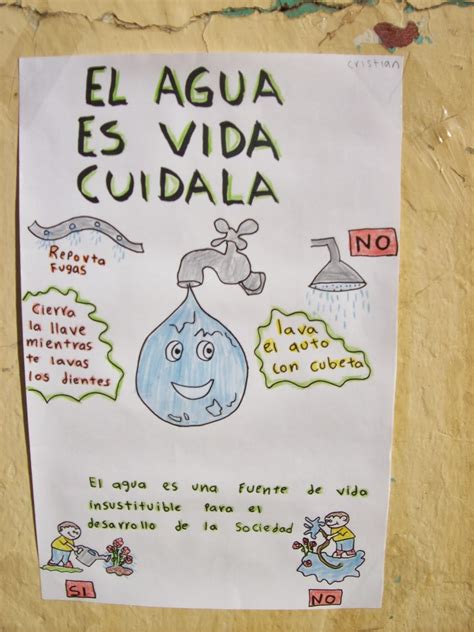 cristian
EL AGUA
ES VIDA
CUIDALA
NO
Reporta
Fugas
Cierra
la llave
mientras
te lavas
los dientes
lava
el auto
con cubeta
El agua es una fuente de vida
insustituible para el
desarrollo de la sociedad
SI
NO